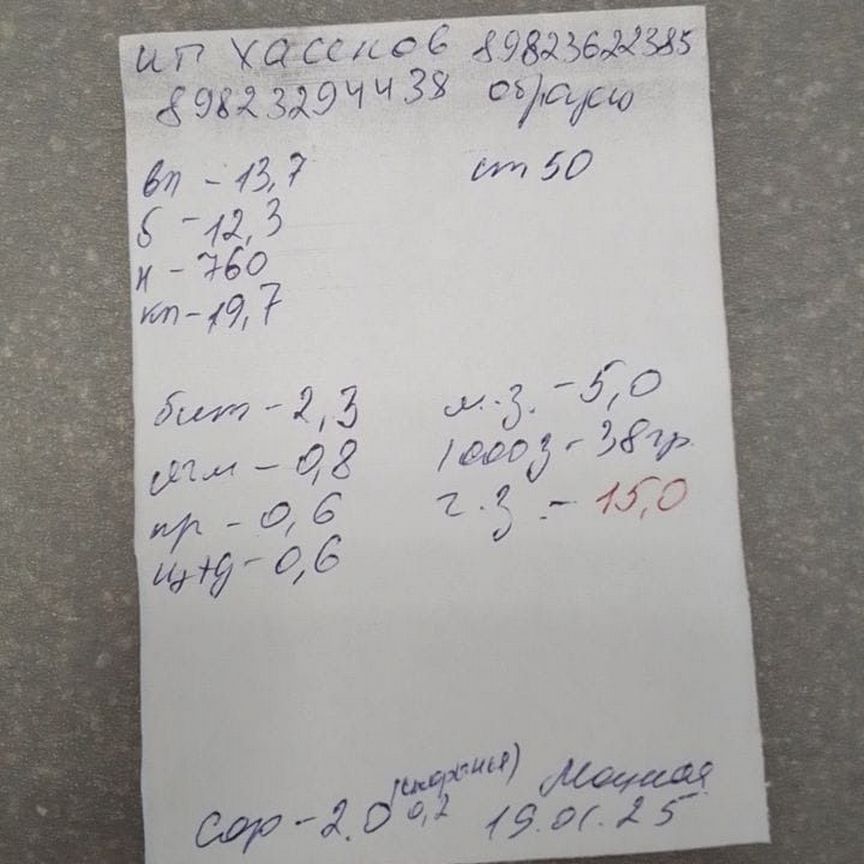 ИП Хасенов 89823622385
89823294438 образец
вл - 13,7 ст 50
б - 12,3
н - 760
кл - 19,7
бит - 2,3 м.з. - 5,0
1000з - 38гр.
пр - 0,6 г.з. - 15,0
щ+д - 0,6
Сор - 2.0 0,2 19.01.25